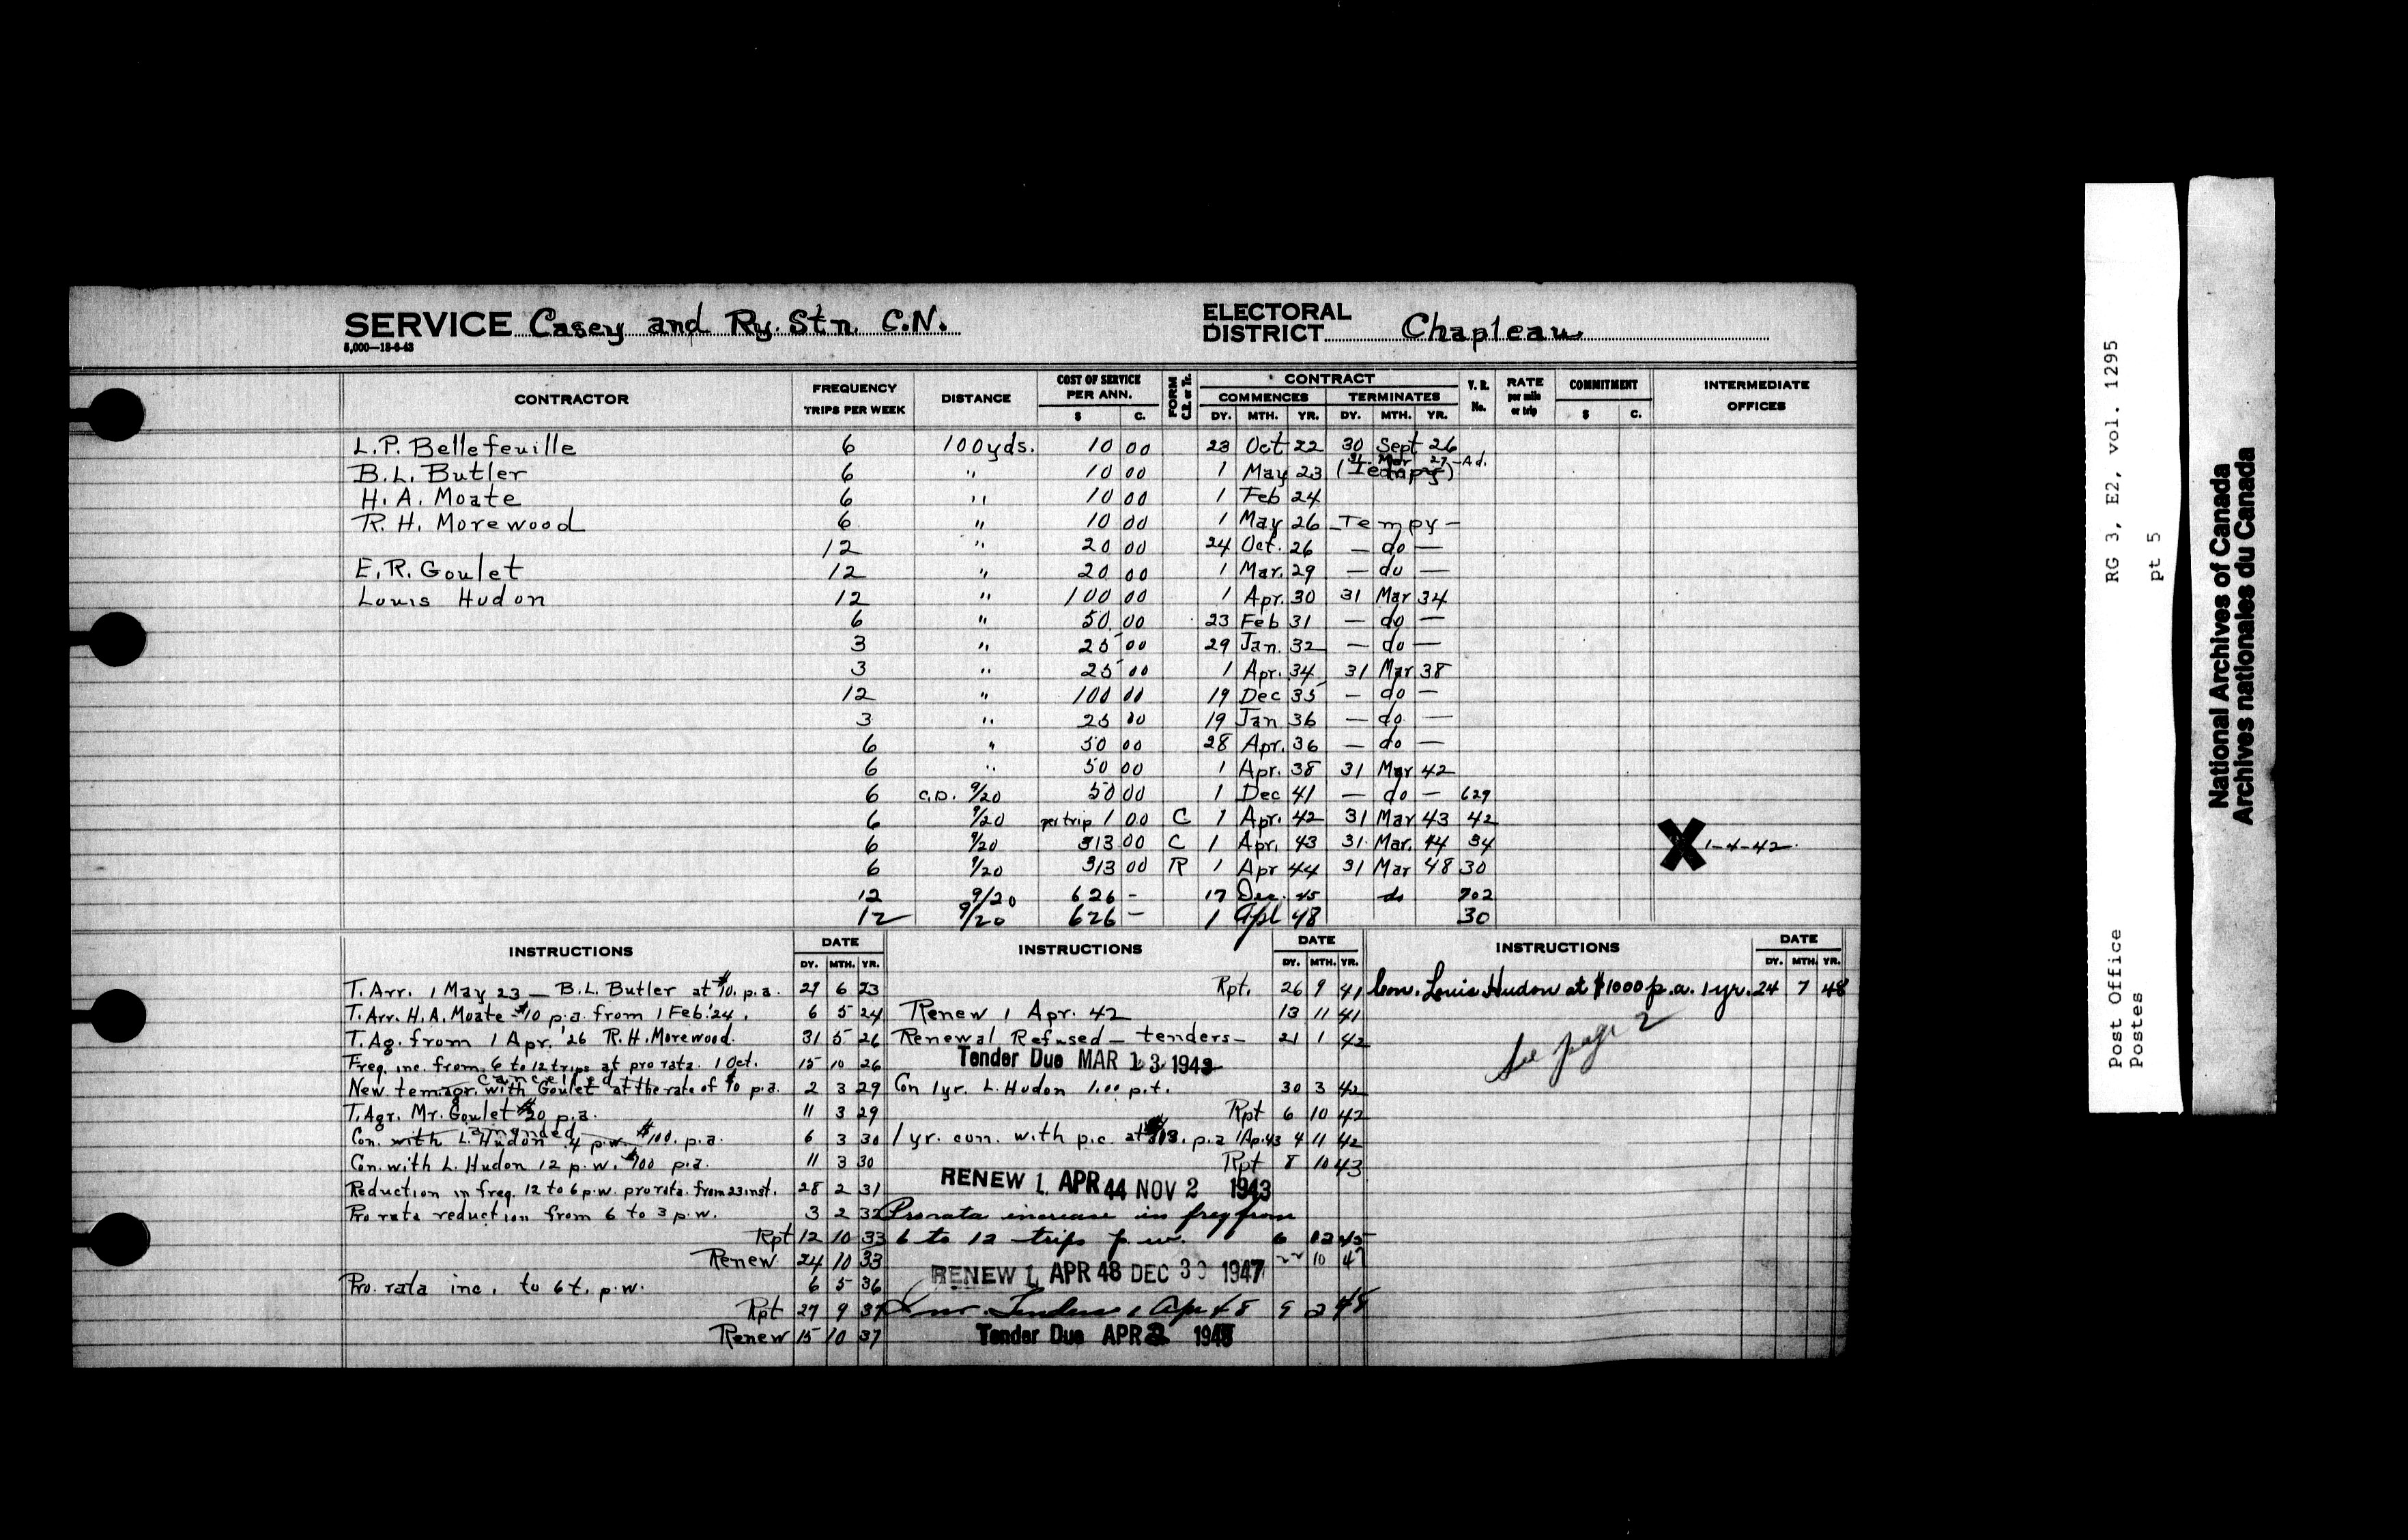 SERVICE Casey and Ry. Stn. C.N.
5,000—18-6-43
ELECTORAL DISTRICT Chapleau
CONTRACTOR FREQUENCY TRIPS PER WEEK DISTANCE COST OF SERVICE PER ANN. $ C. FORM C.R. or Tr. CONTRACT COMMENCES DY. MTH. YR. TERMINATES DY. MTH. YR. V. R. No. RATE per mile or trip COMMITMENT $ C. INTERMEDIATE OFFICES
L.P. Bellefeuille 6 100 yds. 10 00 23 Oct 22 30 Sept 26
31 Mar 27 - Ad.
B.L. Butler 6 " 10 00 1 May 23 (Tempy)
H. A. Moate 6 " 10 00 1 Feb 24
R. H. Morewood 6 " 10 00 1 May 26 - Tempy -
12 " 20 00 24 Oct. 26 — do —
E.R. Goulet 12 " 20 00 1 Mar. 29 — do —
Louis Hudon 12 " 100 00 1 Apr. 30 31 Mar 34
6 " 50 00 23 Feb 31 — do —
3 " 25 00 29 Jan. 32 — do —
3 " 25 00 1 Apr. 34 31 Mar 38
12 " 100 00 19 Dec 35 — do —
3 " 25 00 19 Jan 36 — do —
6 " 50 00 28 Apr. 36 — do —
6 " 50 00 1 Apr. 38 31 Mar 42
6 C.D. 9/20 50 00 1 Dec 41 — do — 629
6 9/20 per trip 1 00 C 1 Apr. 42 31 Mar 43 42
6 9/20 313 00 C 1 Apr. 43 31 Mar. 44 34 X 1-4-42.
6 9/20 313 00 R 1 Apr 44 31 Mar 48 30
12 9/20 626 - 17 Dec. 45 do 702
12 9/20 626 - 1 Apl 48 30
INSTRUCTIONS DATE DY. MTH. YR. INSTRUCTIONS DATE DY. MTH. YR. INSTRUCTIONS DATE DY. MTH. YR.
T. Arr. 1 May 23 — B.L. Butler at $10. p.a. 29 6 23
T. Arr. H.A. Moate - $10 p.a. from 1 Feb. '24. 6 5 24
T. Ag. from 1 Apr. '26 R.H. Morewood. 31 5 26
Freq. inc. from 6 to 12 trips at pro rata. 1 Oct. 15 10 26
cancelled
New tem. agr. with Goulet at the rate of $10 p.a. 2 3 29
T. Agr. Mr. Goulet $20 p.a. 11 3 29
amended
Con. with L. Hudon 4 p.w. $100. p.a. 6 3 30
Con. with L. Hudon 12 p.w. $100 p.a. 11 3 30
Reduction in freq. 12 to 6 p.w. pro rata. from 23 inst. 28 2 31
Pro rata reduction from 6 to 3 p.w. 3 2 32
Rpt 12 10 33
Renew 24 10 33
Pro. rata inc. to 6 t. p.w. 6 5 36
Rpt 27 9 37
Renew 15 10 37
Rpt. 26 9 41
Renew 1 Apr. 42 13 11 41
Renewal Refused — tenders — 21 1 42
Tender Due MAR 13 1942
Con 1 yr. L. Hudon 1.00 p.t. 30 3 42
Rpt 6 10 42
1 yr. con. with p.c. at p.a 1 Ap. 43 4 11 42
Rpt 8 10 43
RENEW 1 APR 44 NOV 2 1943
Prorata increase in freq from
6 to 12 trips p.w. 6 12 45
22 10 47
RENEW 1 APR 48 DEC 30 1947
Tenders 1 Apr 48 9 2 48
Tender Due APR 2 1948
Con. Louis Hudon at $1000 p.a. 1 yr. 24 7 48
See page 2
Post Office
Postes
RG 3, E2, vol. 1295
pt 5
National Archives of Canada
Archives nationales du Canada